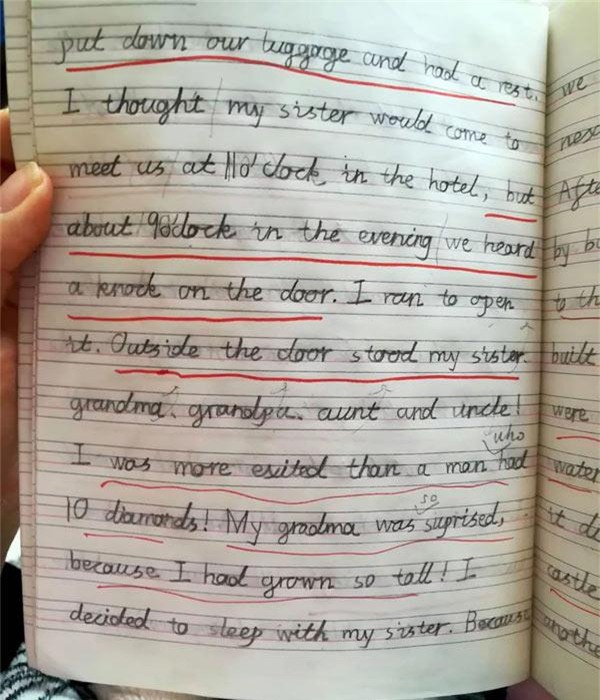 put down our luggage and had a rest.
I thought my sister would come to
meet us at 11 o'clock in the hotel, but
about 9 o'clock in the evening we heard
a knock on the door. I ran to open
it. Outside the door stood my sister.
grandma. grandpa. aunt and uncle!
who
I was more exited than a man had
10 diamonds! My gradma was suprised,
so
because I had grown so tall! I
decided to sleep with my sister. Because
we
by
built
were
water
castle